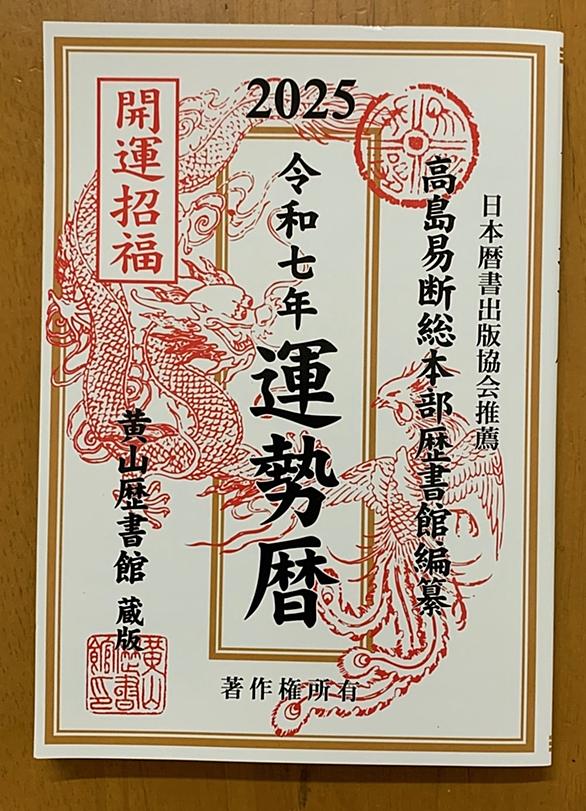 2025
日本暦書出版協会推薦
高島易断総本部歴書館編纂
令和七年 運勢暦
開運招福
黄山歴書館 蔵版
黄山歴書館印
著作権所有